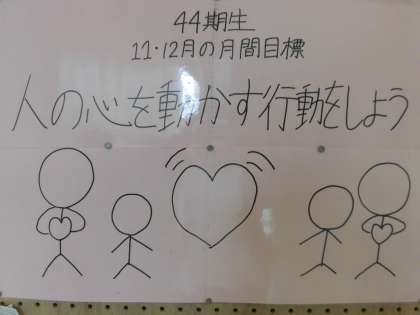 44期生
11・12月の月間目標
人の心を動かす行動をしよう